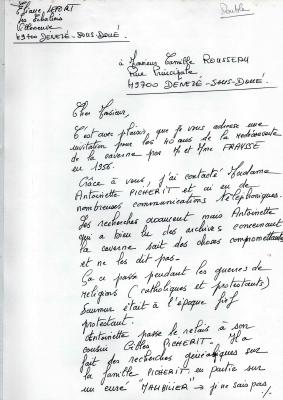 Liane LEFORT
Les Sabotiers
Villeneuve
49700 DENEZÉ-SOUS-DOUÉ.
Double
à Monsieur Camille ROUSSEAU
Rue Principale
49700 DENEZÉ-SOUS-DOUÉ.
Cher Monsieur,
C'est avec plaisir que je vous adresse une
invitation pour les 40 ans de la redécouverte
de la caverne par M et Mme FRAYSSE
en 1956.
Grâce à vous, j'ai contacté Madame
Antoinette PICHERIT et ai eu de
nombreuses communications téléphoniques.
Les recherches avancent mais Antoinette
qui a bien lu des archives concernant
la caverne sait des choses compromettantes
et ne les dit pas.
Ça ce passe pendant les guerres de
religions (catholiques et protestants)
Saumur était à l'époque fief
protestant.
Antoinette passe le relais à son
cousin Gilles PICHERIT. Il a
fait des recherches généalogiques sur
la famille PICHERIT en partie sur
un curé → je ne sais pas